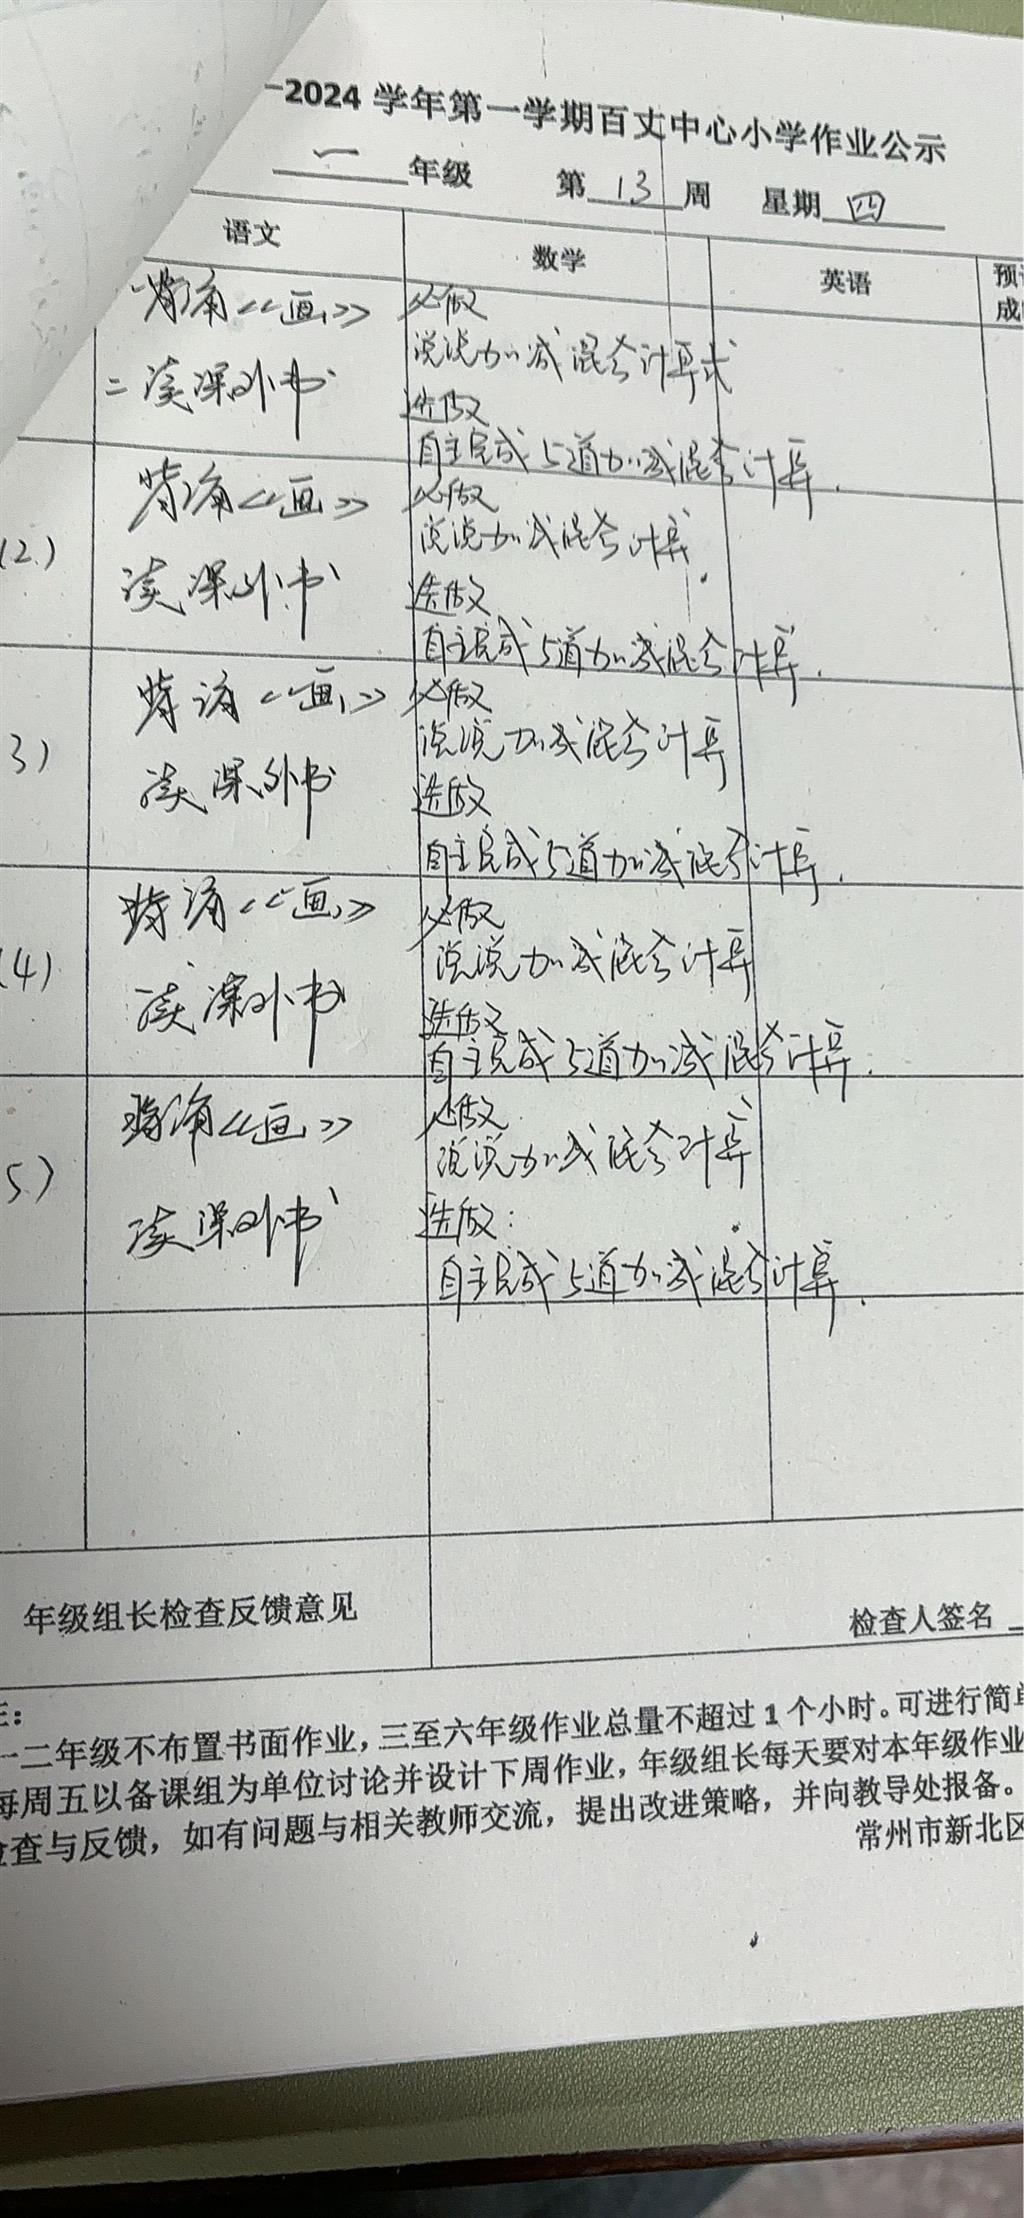 -2024 学年第一学期百丈中心小学作业公示
一 年级 第 13 周 星期 四
语文 数学 英语
背诵《画》
二 读课外书
必做
说说加减混合计算式
选做
自主完成5道加减混合计算.
(2)
背诵《画》
读课外书
必做
说说加减混合计算.
选做
自主完成5道加减混合计算.
3)
背诵《画》
读课外书
必做
说说加减混合计算
选做
自主完成5道加减混合计算.
(4)
背诵《画》
读课外书
必做
说说加减混合计算
选做
自主完成5道加减混合计算.
5)
背诵《画》
读课外书
必做
说说加减混合计算
选做:
自主完成5道加减混合计算.
年级组长检查反馈意见 检查人签名
一二年级不布置书面作业,三至六年级作业总量不超过1个小时。可进行简
每周五以备课组为单位讨论并设计下周作业,年级组长每天要对本年级作业
查与反馈,如有问题与相关教师交流,提出改进策略,并向教导处报备。
常州市新北区